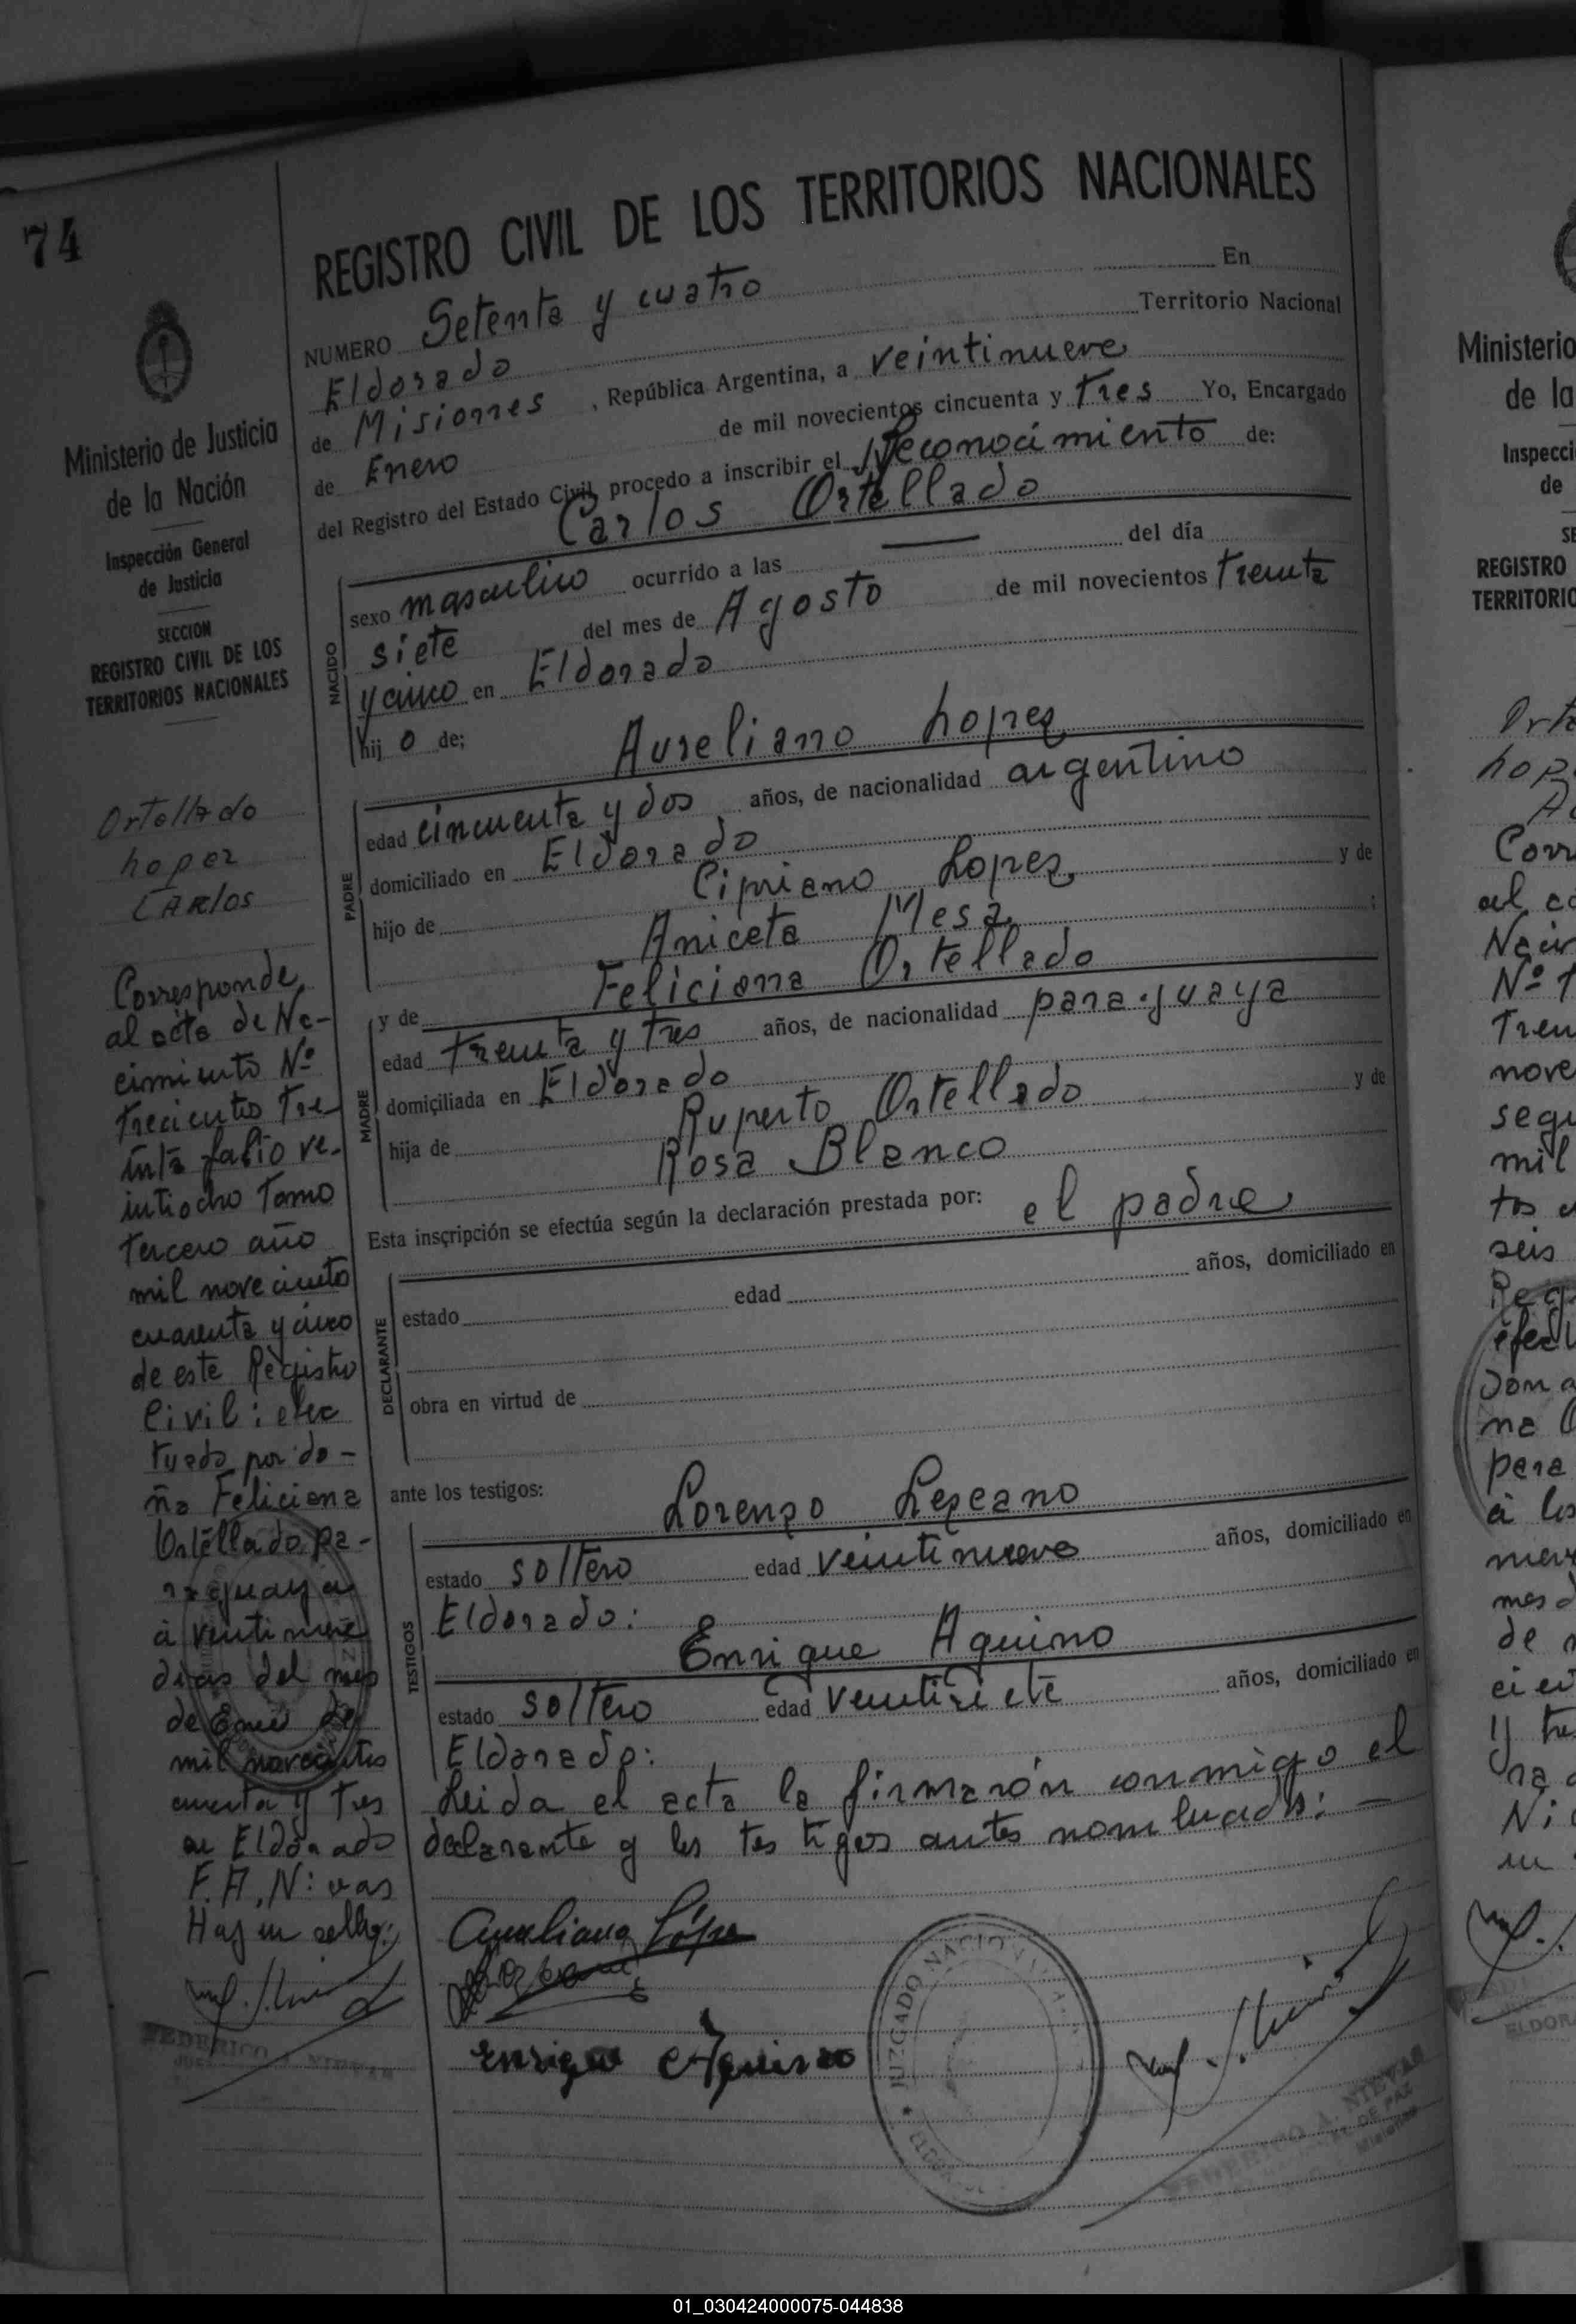 74
Ministerio de Justicia
de la Nación
Inspección General
de Justicia
SECCION
REGISTRO CIVIL DE LOS
TERRITORIOS NACIONALES
Ortellado
Lopez
CARLOS
Corresponde
al acta de Na-
cimiento Nº
trecientos Tre-
inta folio ve-
intiocho Tomo
Tercero año
mil noveciento
cuarenta y cinco
de este Registro
Civil: efec
tuada por do-
ña Feliciana
Ortellado pa-
raguaya
a veintinueve
dias del mes
de Enero de
mil novecientos
cuenta y Tres
en Eldorado
F. A. N: vas
Hay un sello:
FEDERICO A. NIEVAS
REGISTRO CIVIL DE LOS TERRITORIOS NACIONALES
NUMERO Setenta y cuatro En
Eldorado Territorio Nacional
de Misiones, República Argentina, a veintinueve
de Enero de mil novecientos cincuenta y Tres Yo, Encargado
del Registro del Estado Civil, procedo a inscribir el Reconocimiento de:
Carlos Ortellado
NACIDO
sexo masculino ocurrido a las — del día
siete del mes de Agosto de mil novecientos treinta
y cinco en Eldorado
hij o de;
Aureliano Lopez
PADRE
edad cincuenta y dos años, de nacionalidad argentino
domiciliado en Eldorado
hijo de Cipriano Lopez y de
Aniceta Mesa ;
y de Feliciana Ortellado
MADRE
edad treinta y tres años, de nacionalidad paraguaya
domiciliada en Eldorado
hija de Ruperto Ortellado y de
Rosa Blanco
Esta inscripción se efectúa según la declaración prestada por: el padre
DECLARANTE
estado edad años, domiciliado en
obra en virtud de
ante los testigos:
Lorenzo Lezcano
TESTIGOS
estado soltero edad veintinueve años, domiciliado en
Eldorado:
Enrique Aquino
estado soltero edad veintisiete años, domiciliado en
Eldorado:
Leida el acta la firmarón conmigo el
declarante y los testigos antes nombrados: —
Aureliano López
Enrique Aquino
JUZGADO NACIONAL
FEDERICO A. NIEVAS
DE PAZ
Misiones
Ministerio
de la
Inspecci
de
SE
REGISTRO
TERRITORIO
Corr
al
Nº 1
Tren
nove
segu
mil
seis
para
mes d
de
ELDORA
01_030424000075-044838